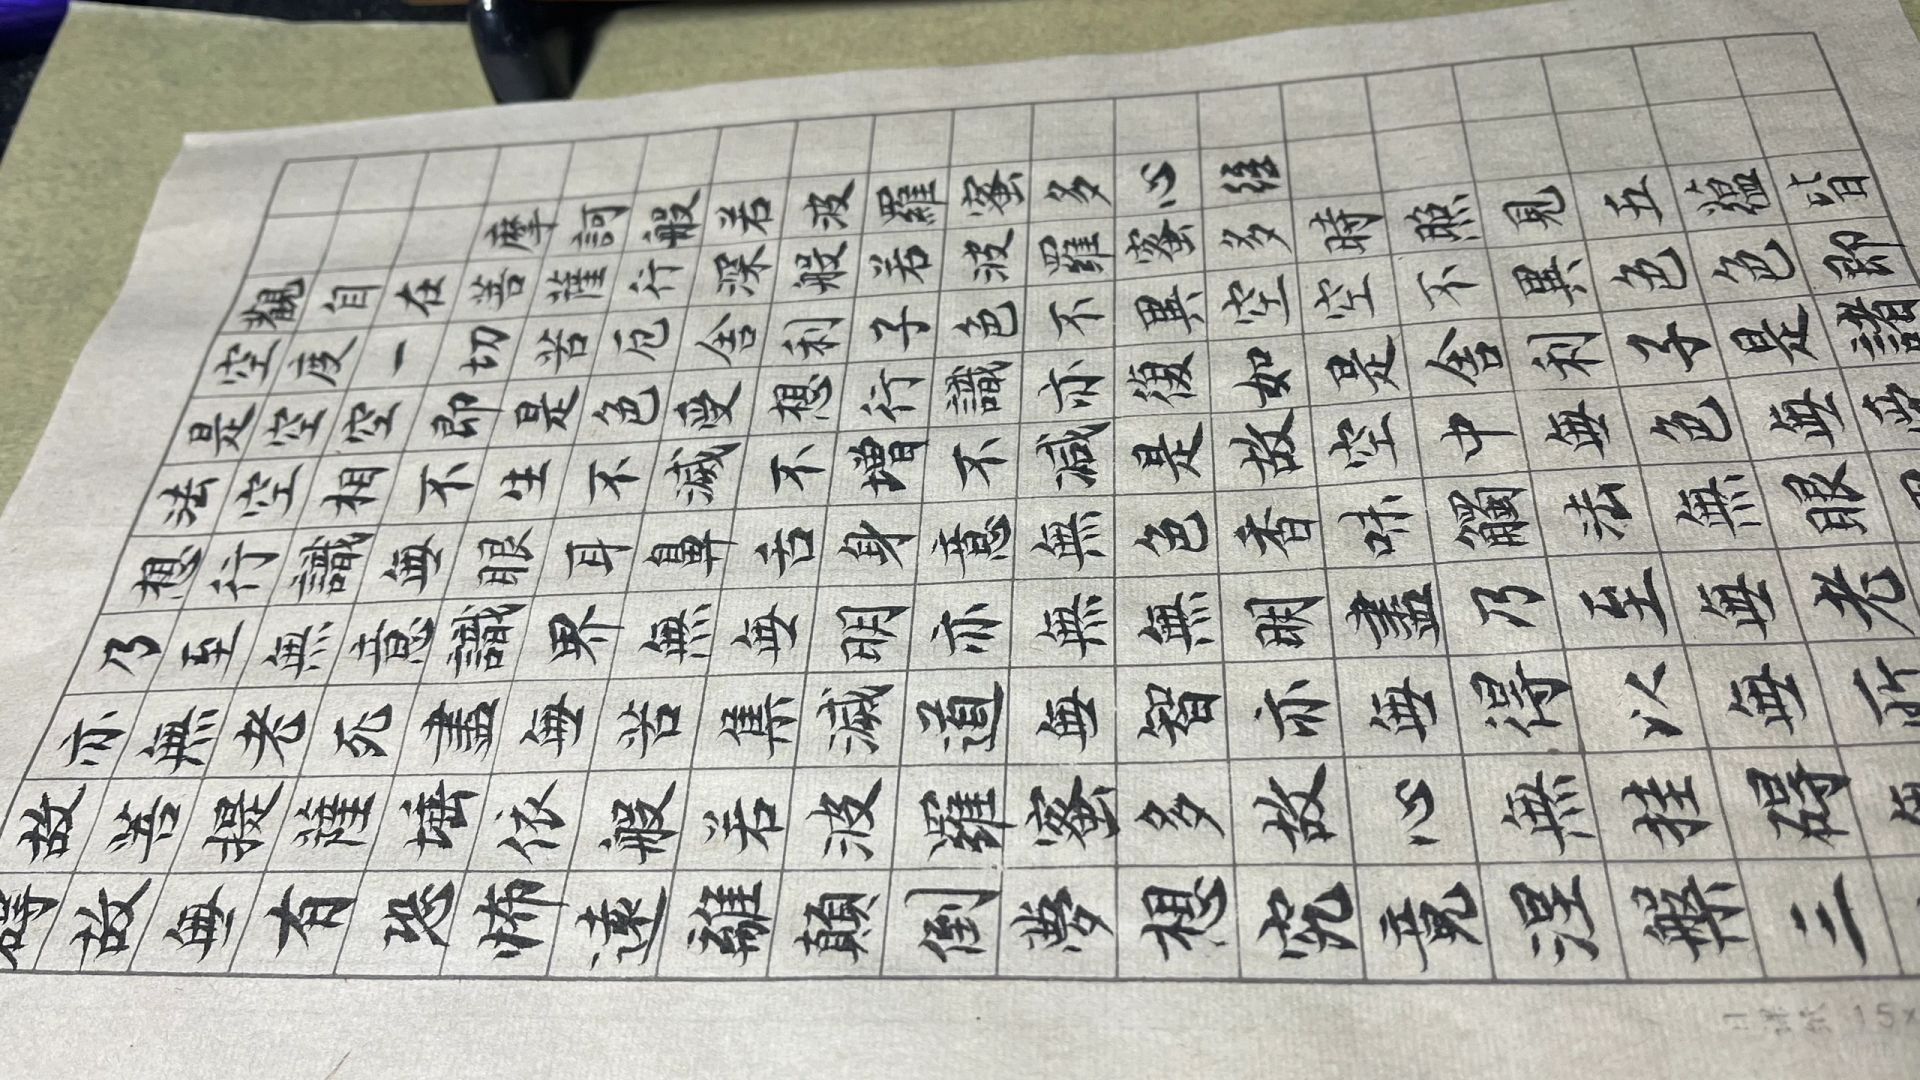 摩訶般若波羅蜜多心経
觀自在菩薩行深般若波羅蜜多時照見五蘊皆
空度一切苦厄舍利子色不異空空不異色色即
是空空即是色受想行識亦復如是舍利子是諸
法空相不生不滅不增不減是故空中無色無受
想行識無眼耳鼻舌身意無色香味觸法無眼
乃至無意識界無無明亦無無明盡乃至無老
亦無老死盡無苦集滅道無智亦無得以無所
故菩提薩埵依般若波羅蜜多故心無挂礙
礙故無有恐怖遠離顛倒夢想究竟涅槃三
15×